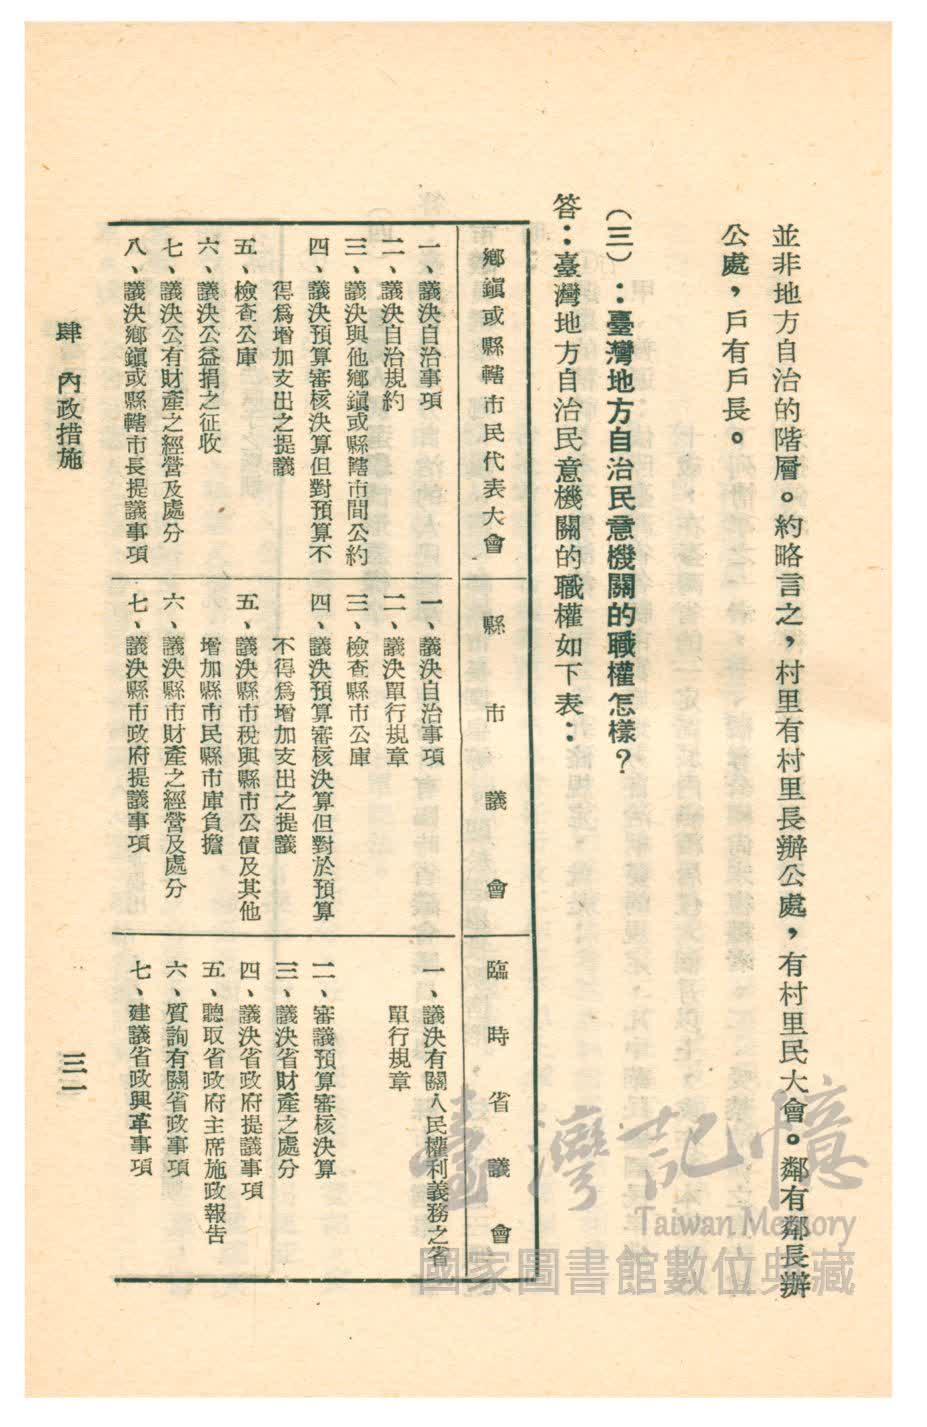 並非地方自治的階層。約略言之，村里有村里長辦公處，有村里民大會。鄰有鄰長辦
公處，戶有戶長。
（三）：臺灣地方自治民意機關的職權怎樣？
答：臺灣地方自治民意機關的職權如下表：
鄉鎮或縣轄市民代表大會
一、議決自治事項
二、議決自治規約
三、議決與他鄉鎮或縣轄市間公約
四、議決預算審核決算但對預算不
得爲增加支出之提議
五、檢查公庫
六、議決公益捐之征收
七、議決公有財產之經營及處分
八、議決鄉鎮或縣轄市長提議事項
縣市議會
一、議決自治事項
二、議決單行規章
三、檢查縣市公庫
四、議決預算審核決算但對於預算
不得爲增加支出之提議
五、議決縣市稅與縣市公債及其他
增加縣市民縣市庫負擔
六、議決縣市財產之經營及處分
七、議決縣市政府提議事項
臨時省議會
一、議決有關人民權利義務之省
單行規章
二、審議預算審核決算
三、議決省財產之處分
四、議決省政府提議事項
五、聽取省政府主席施政報告
六、質詢有關省政事項
七、建議省政興革事項
肆 內政措施
三一
臺灣記憶
Taiwan Memory
國家圖書館數位典藏